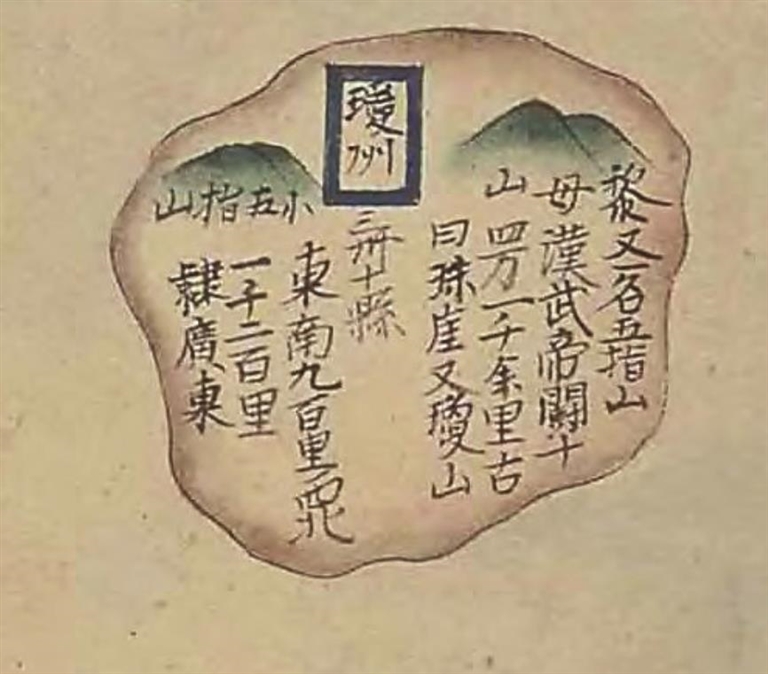 黎母山
又一名五指山
漢武帝闢十
四方一千余里古
曰珠崖又瓊山
瓊州
三州十縣
小五指山
東南九百里西北
一千二百里
隸廣東